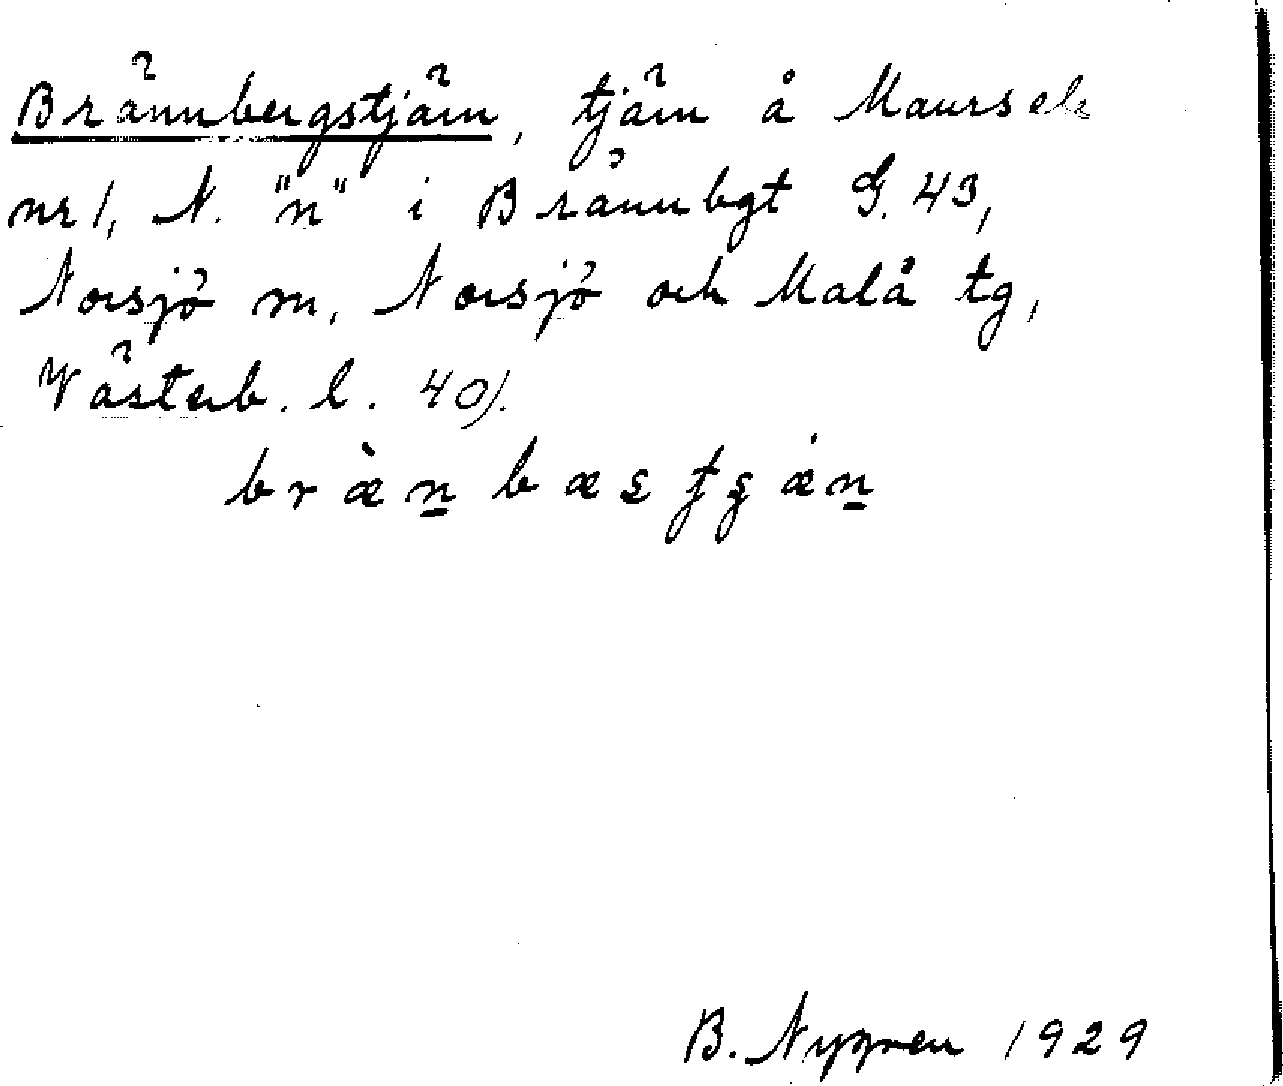 Brännbergstjärn, tjärn å Maursele
nr 1, N. "n" i Brännbgt G. 43,
Norsjö m, Norsjö och Malå tg,
Västerb. l. 40).
bræ̀n̲ bæs tʂæ̀n̲
B. Nygren 1929